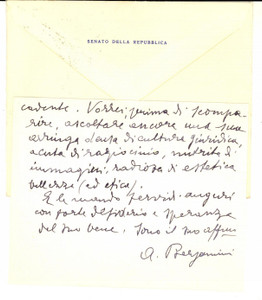 SENATO DELLA REPUBBLICA
cadente. Vorrei prima di scompa-
rire, ascoltare ancora una sua
arringa dotta di cultura giuridica,
acuta di raziocinio, nutrita di
immagini, radiosa di estetica
bellezza (ed etica).
E le mando fervidi auguri
con forte desiderio e speranza
del suo bene. Sono il suo aff.mo
A. Bergamini